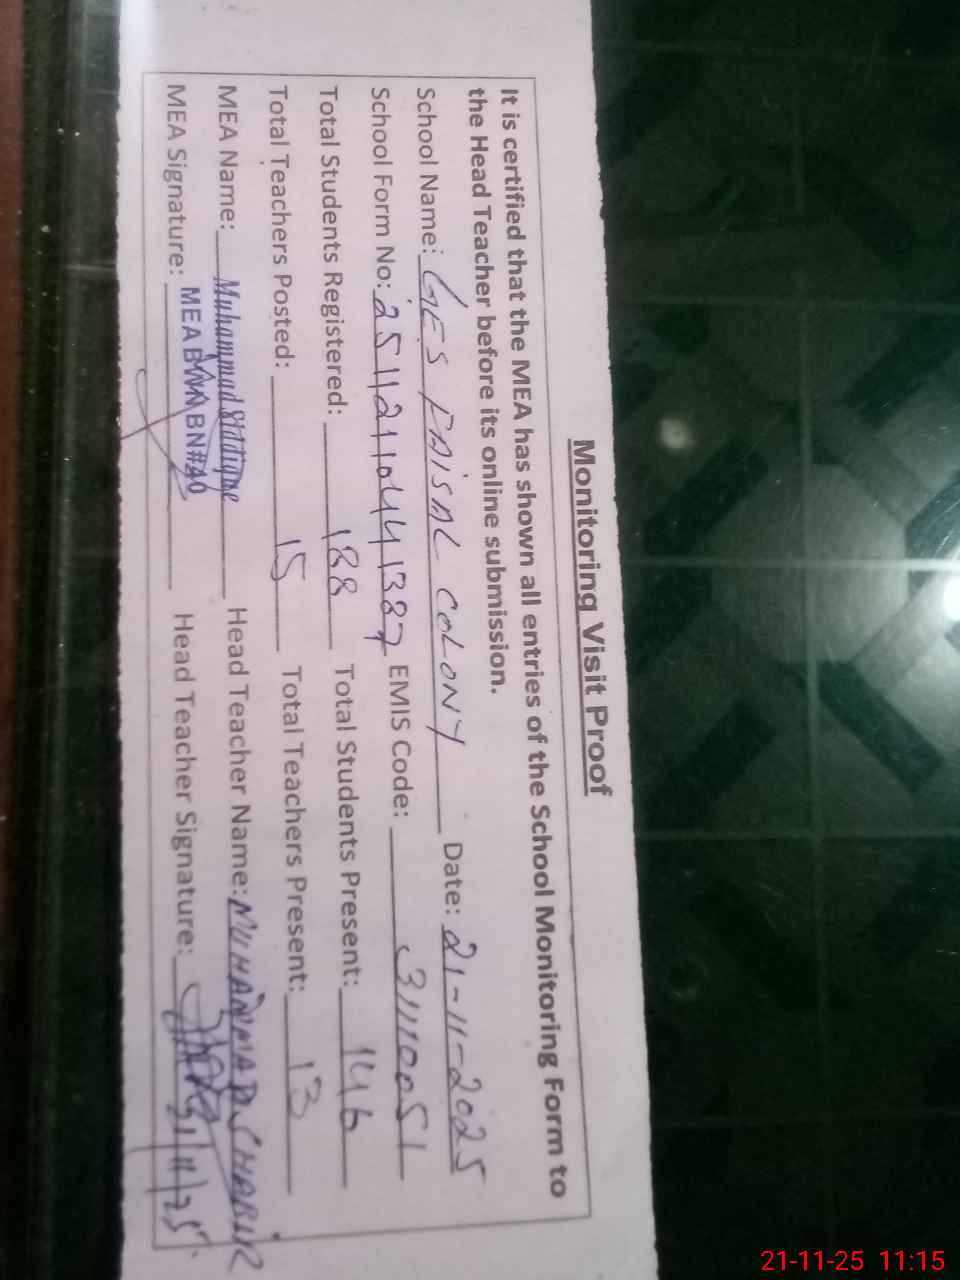 Monitoring Visit Proof
It is certified that the MEA has shown all entries of the School Monitoring Form to
the Head Teacher before its online submission.
School Name: GES FAISAL COLONY Date: 21-11-2025
School Form No: 251121104441387 EMIS Code: 31110051
Total Students Registered: 188 Total Students Present: 146
Total Teachers Posted: 15 Total Teachers Present: 13
MEA Name: Muhammad Siddique Head Teacher Name: MUHAMMAD SHABIR
MEA Signature: MEA BWN BN#40 Head Teacher Signature: 21/11/25
21-11-25 11:15